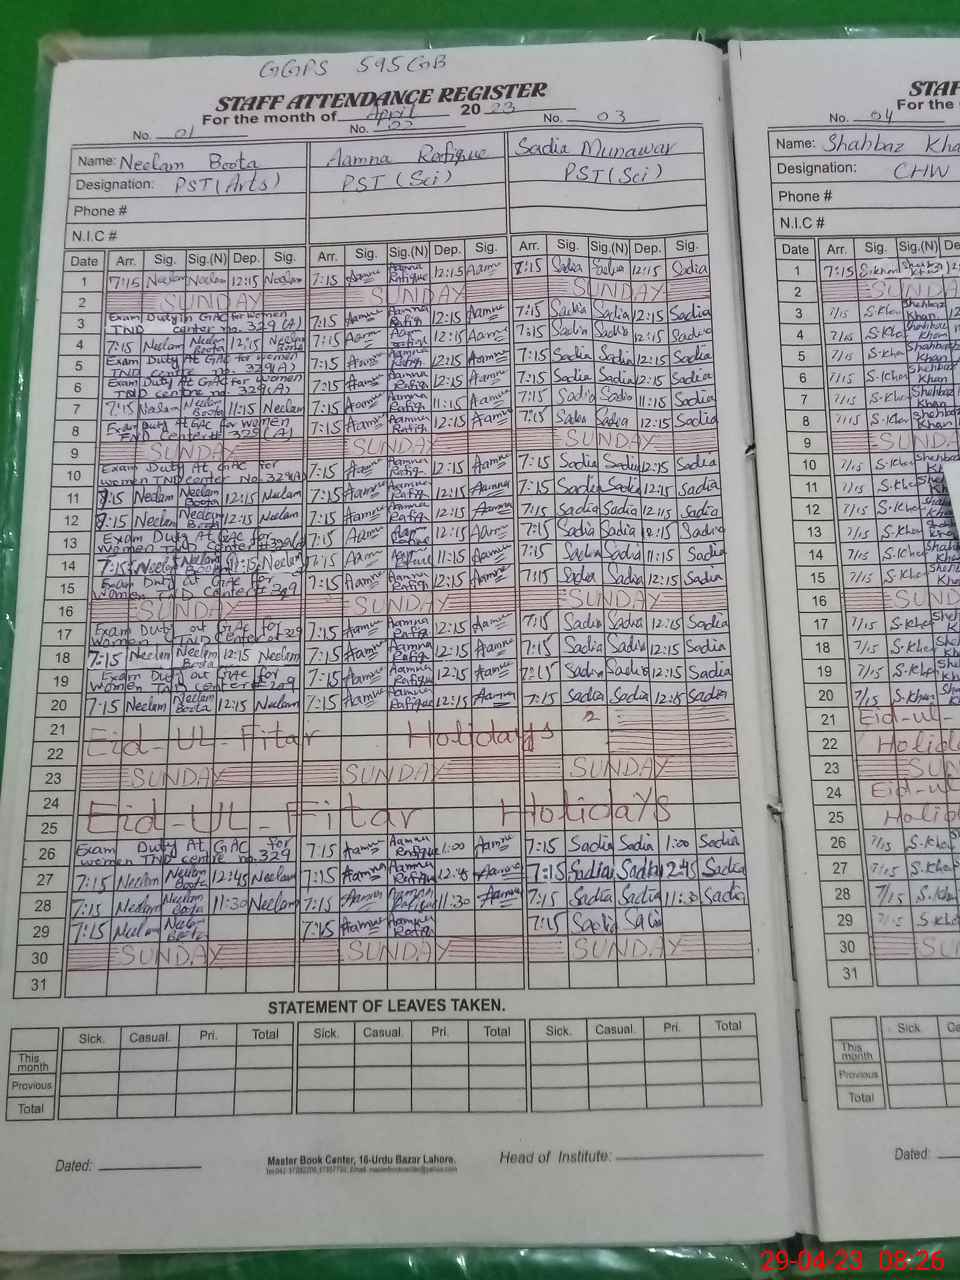 GGPS 595GB
STAFF ATTENDANCE REGISTER
For the month of April 2023
No. 01 No. No. 03
Name: Neelam Boota Aamna Rafique Sadia Munawar
Designation: PST(Arts) PST(Sci) PST(Sci)
Phone #
N.I.C #
Date Arr. Sig. Sig.(N) Dep. Sig. Arr. Sig. Sig.(N) Dep. Sig. Arr. Sig. Sig.(N) Dep. Sig.
1 7:15 Neelam Neelam 12:15 Neelam 7:15 Aamna Aamna Rafique 12:15 Aamna 7:15 Sadia Sadia 12:15 Sadia
2 SUNDAY SUNDAY SUNDAY
3 Exam Duty in GAC for women TND center no. 329 (A) 7:15 Aamna Aamna Rafiq 12:15 Aamna 7:15 Sadia Sadia 12:15 Sadia
4 7:15 Neelam Neelam Boota 12:15 Neelam Boota 7:15 Aamna 12:15 Aamna 7:15 Sadia Sadia 12:15 Sadia
5 Exam Duty At GAC for women TND centre no. 329(A) 7:15 Aamna Aamna Rafiq 12:15 Aamna 7:15 Sadia Sadia 12:15 Sadia
6 Exam Duty At GAC for women TND centre no. 329(A) 7:15 Aamna Aamna Rafiq 12:15 Aamna 7:15 Sadia Sadia 12:15 Sadia
7 7:15 Neelam Neelam Boota 11:15 Neelam 7:15 Aamna Aamna Rafiq 11:15 Aamna 7:15 Sadia Sadia 11:15 Sadia
8 Exam Duty At GAC for women TND Center # 329 (A) 7:15 Aamna Aamna Rafiq 12:15 Aamna 7:15 Sadia Sadia 12:15 Sadia
9 SUNDAY SUNDAY SUNDAY
10 Exam Duty At GAC for women TND center No. 329(A) 7:15 Aamna Aamna Rafiq 12:15 Aamna 7:15 Sadia Sadia 12:15 Sadia
11 7:15 Neelam Neelam Boota 12:15 Neelam 7:15 Aamna Aamna Rafiq 12:15 Aamna 7:15 Sadia Sadia 12:15 Sadia
12 7:15 Neelam Neelam Boota 12:15 Neelam 7:15 Aamna Aamna Rafiq 12:15 Aamna 7:15 Sadia Sadia 12:15 Sadia
13 Exam Duty At GAC for women TND Center # 329 7:15 Aamna 12:15 Aamna 7:15 Sadia Sadia 12:15 Sadia
14 7:15 Neelam Neelam 11:15 Neelam 7:15 Aamna 11:15 Aamna 7:15 Sadia Sadia 11:15 Sadia
15 Exam Duty at GAC for women TND Center # 329 7:15 Aamna Aamna Rafiq 12:15 Aamna 7:15 Sadia Sadia 12:15 Sadia
16 SUNDAY SUNDAY SUNDAY
17 Exam Duty at GAC for women TND Center # 329 7:15 Aamna Aamna Rafiq 12:15 Aamna 7:15 Sadia Sadia 12:15 Sadia
18 7:15 Neelam Neelam Boota 12:15 Neelam 7:15 Aamna Aamna Rafiq 12:15 Aamna 7:15 Sadia Sadia 12:15 Sadia
19 Exam Duty at GAC for women TND center # 329 7:15 Aamna Aamna Rafiq 12:15 Aamna 7:15 Sadia Sadia 12:15 Sadia
20 7:15 Neelam Neelam Boota 12:15 Neelam 7:15 Aamna Aamna Rafique 12:15 Aamna 7:15 Sadia Sadia 12:15 Sadia
21
22 Eid-UL-Fitar Holidays
23 SUNDAY SUNDAY SUNDAY
24
25 Eid-UL-Fitar Holidays
26 Exam Duty At GAC for women TND centre no. 329 7:15 Aamna Aamna Rafique 1:00 Aamna 7:15 Sadia Sadia 1:00 Sadia
27 7:15 Neelam Neelam Boota 12:45 Neelam 7:15 Aamna Aamna Rafique 12:45 Aamna 7:15 Sadia Sadia 12:45 Sadia
28 7:15 Neelam Neelam Boota 11:30 Neelam 7:15 Aamna Aamna Rafique 11:30 Aamna 7:15 Sadia Sadia 11:30 Sadia
29 7:15 Neelam Neelam Boota 7:15 Aamna Aamna Rafiq 7:15 Sadia Sadia
30 SUNDAY SUNDAY SUNDAY
31
STATEMENT OF LEAVES TAKEN.
Sick. Casual. Pri. Total Sick. Casual. Pri. Total Sick. Casual. Pri. Total
This month
Previous
Total
Dated: Master Book Center, 16-Urdu Bazar Lahore. Head of Institute:
STAF
For the
No. 04
Name: Shahbaz Kha
Designation: CHW
Phone #
N.I.C #
Date Arr. Sig. Sig.(N) De
1 7:15 S.khan 12
2 SUNDA
3 7/15 S.Khan Shehbaz Khan
4 7/15 S.Khan Shehbaz Khan
5 7/15 S.Khan Shehbaz Khan
6 7/15 S.Khan Shehbaz Khan
7 7/15 S.Khan Shehbaz Khan
8 7/15 S.Khan Shehbaz Khan
9 SUNDA
10 7/15 S.Khan Shehbaz
11 7/15 S.Khan
12 7/15 S.Khan
13 7/15 S.Khan
14 7/15 S.Khan
15 7/15 S.Khan
16 SUND
17 7/15 S.Khan
18 7/15 S.Khan
19 7/15 S.Khan
20 7/15 S.Khan
21 Eid-ul-
22 Holid
23 SUN
24 Eid-ul
25 Holid
26 7/15 S.Khan
27 7/15 S.Khan
28 7/15 S.Khan
29 7/15 S.Khan
30 SU
31
Sick. Ca
This month
Previous
Total
Dated:
29-04-23 08:26